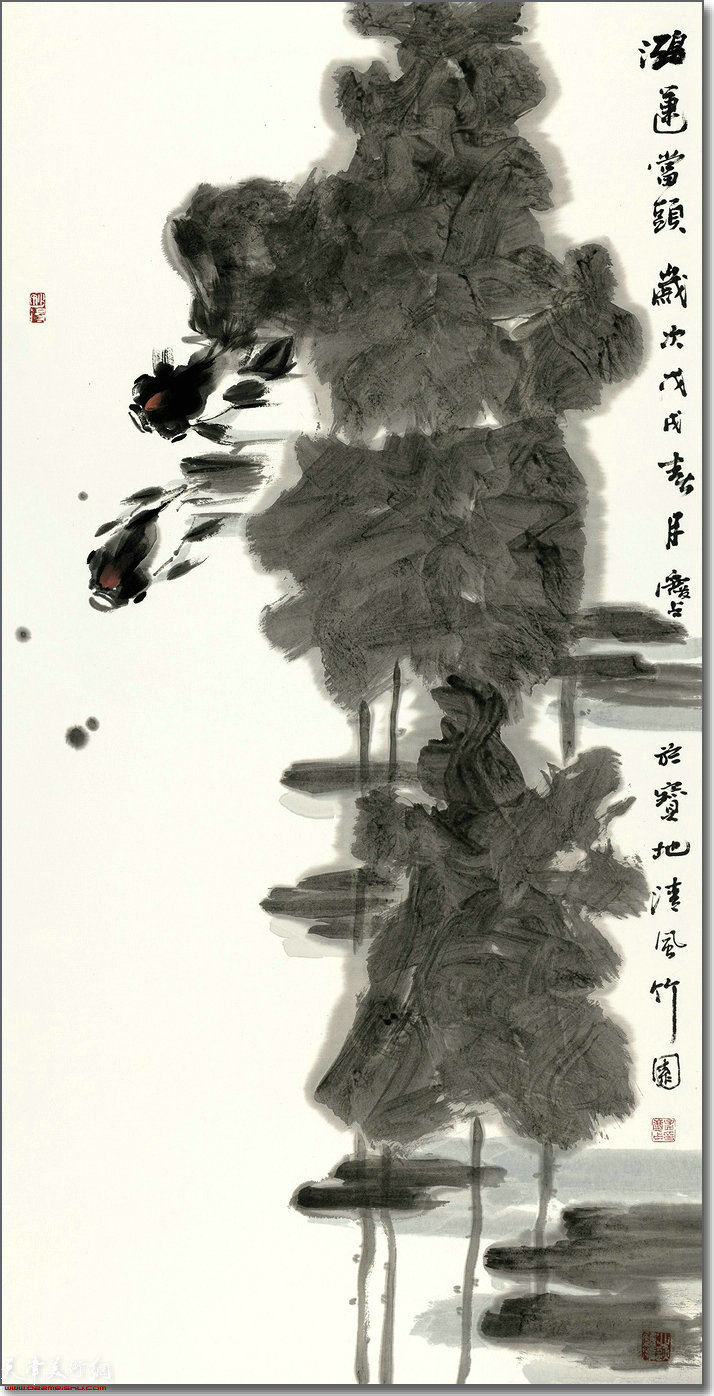 鴻運當頭 歲次戊戌春月慶占
於寶地清風竹園
天津美術網
www.022meishu.com